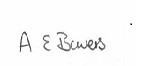 A E Bowers